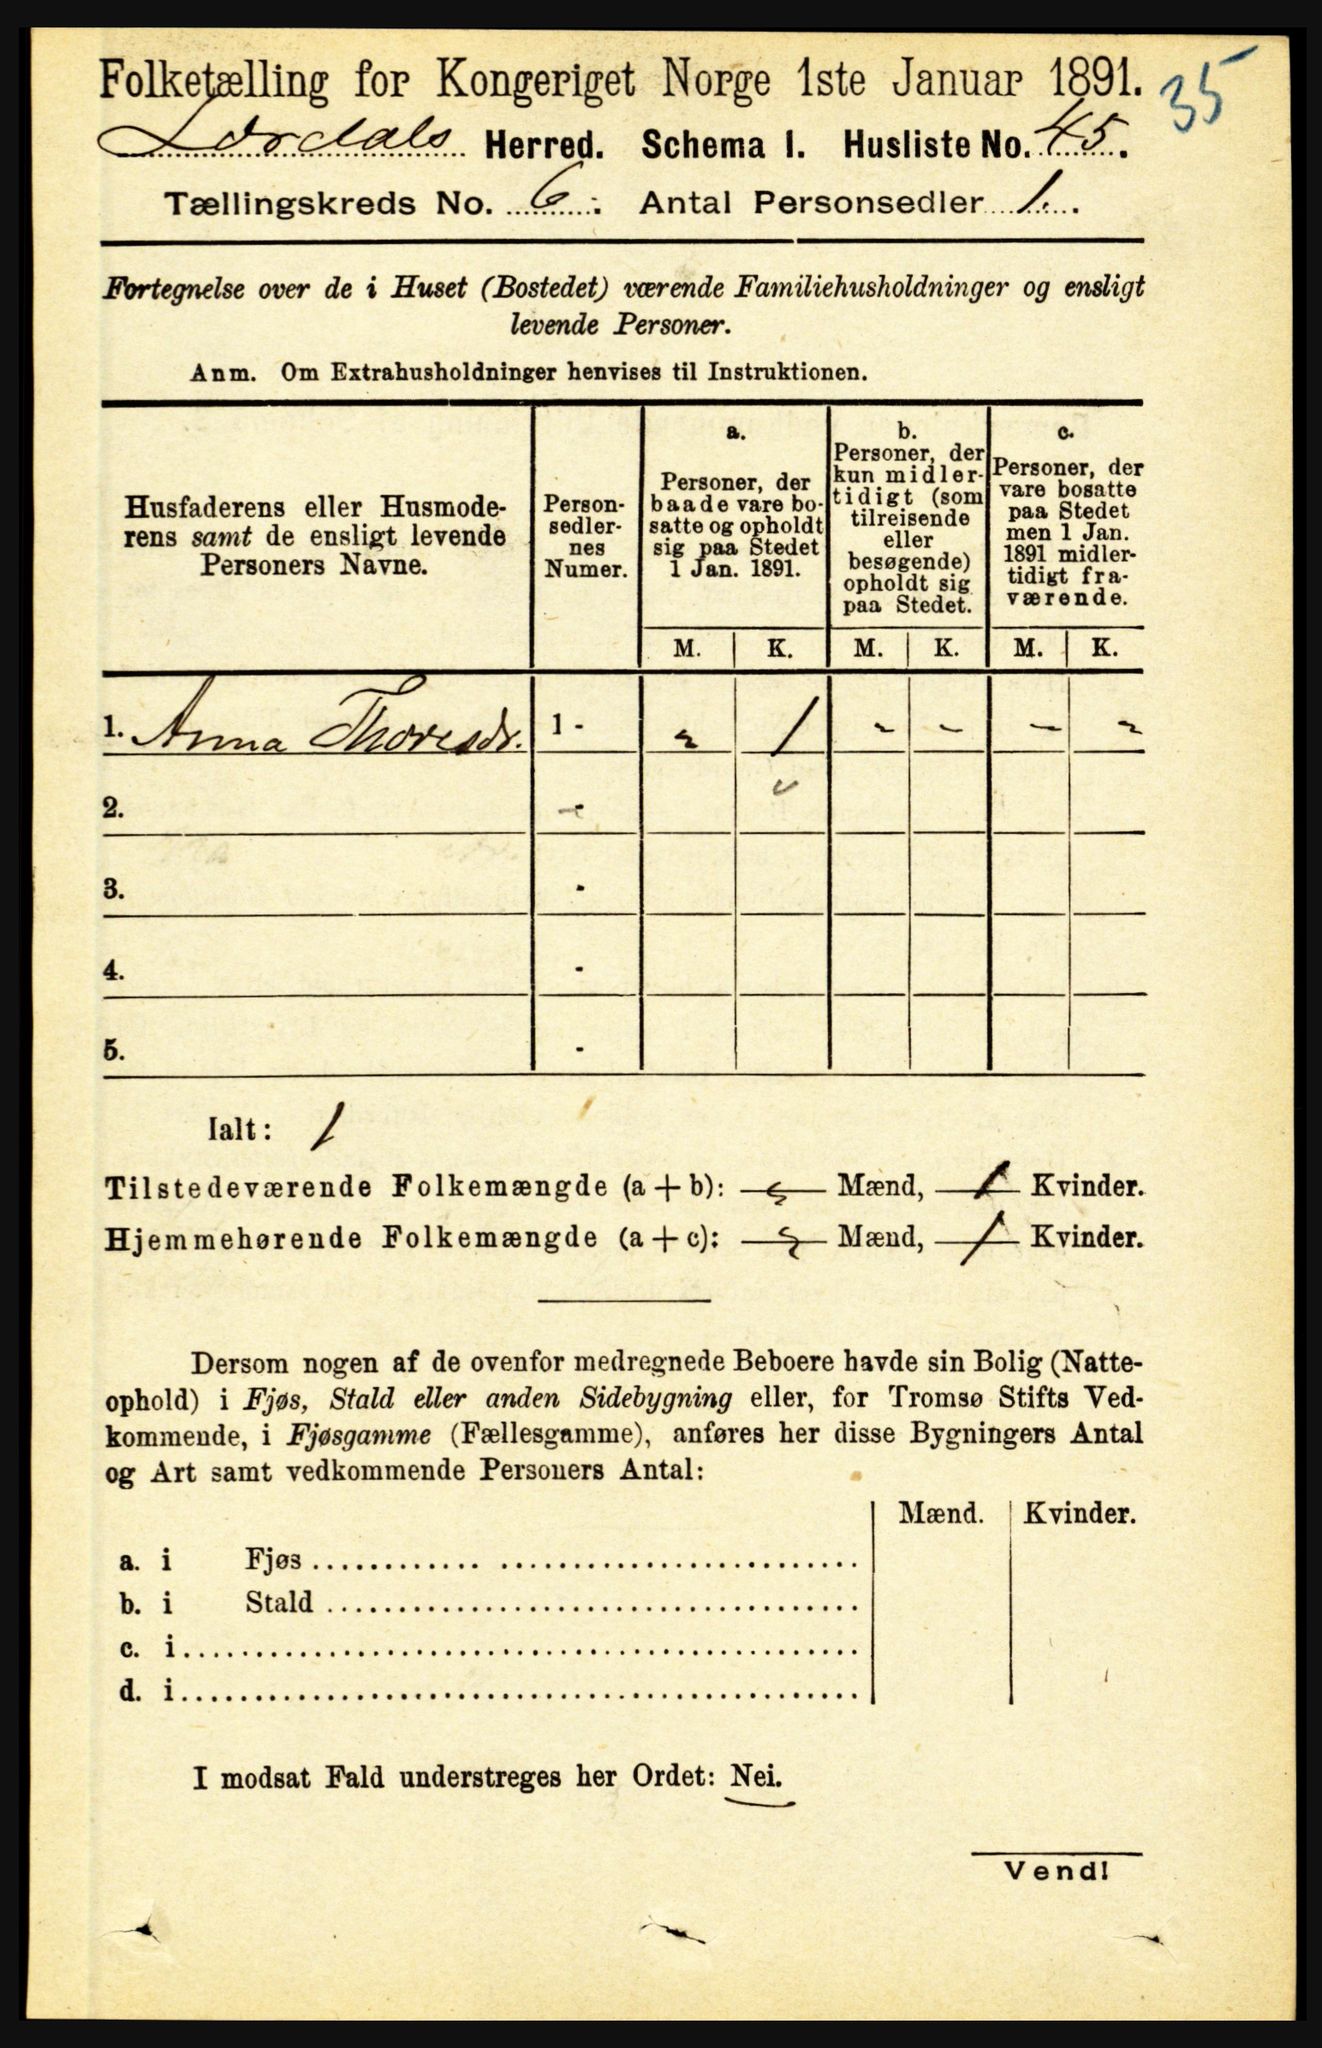 Folketælling for Kongeriget Norge 1ste Januar 1891.
35
Lærdals Herred. Schema I. Husliste No. 45.
Tællingskreds No. 6. Antal Personsedler 1.
Fortegnelse over de i Huset (Bostedet) værende Familiehusholdninger og ensligt
levende Personer.
Anm. Om Extrahusholdninger henvises til Instruktionen.
Husfaderens eller Husmode-
rens samt de ensligt levende
Personers Navne.
Person-
sedler-
nes
Numer.
a.
Personer, der
baade vare bo-
satte og opholdt
sig paa Stedet
1 Jan. 1891.
b.
Personer, der
kun midler-
tidigt (som
tilreisende
eller
besøgende)
opholdt sig
paa Stedet.
c.
Personer, der
vare bosatte
paa Stedet
men 1 Jan.
1891 midler-
tidigt fra-
værende.
M. K. M. K. M. K.
1. Anna Thoresdr. 1 - - 1 - - - -
2. -
3. -
4. -
5. -
Ialt: 1
Tilstedeværende Folkemængde (a + b): - Mænd, 1 Kvinder.
Hjemmehørende Folkemængde (a + c): - Mænd, 1 Kvinder.
Dersom nogen af de ovenfor medregnede Beboere havde sin Bolig (Natte-
ophold) i Fjøs, Stald eller anden Sidebygning eller, for Tromsø Stifts Ved-
kommende, i Fjøsgamme (Fællesgamme), anføres her disse Bygningers Antal
og Art samt vedkommende Personers Antal:
Mænd. Kvinder.
a. i Fjøs
b. i Stald
c. i
d. i
I modsat Fald understreges her Ordet: Nei.
Vend!